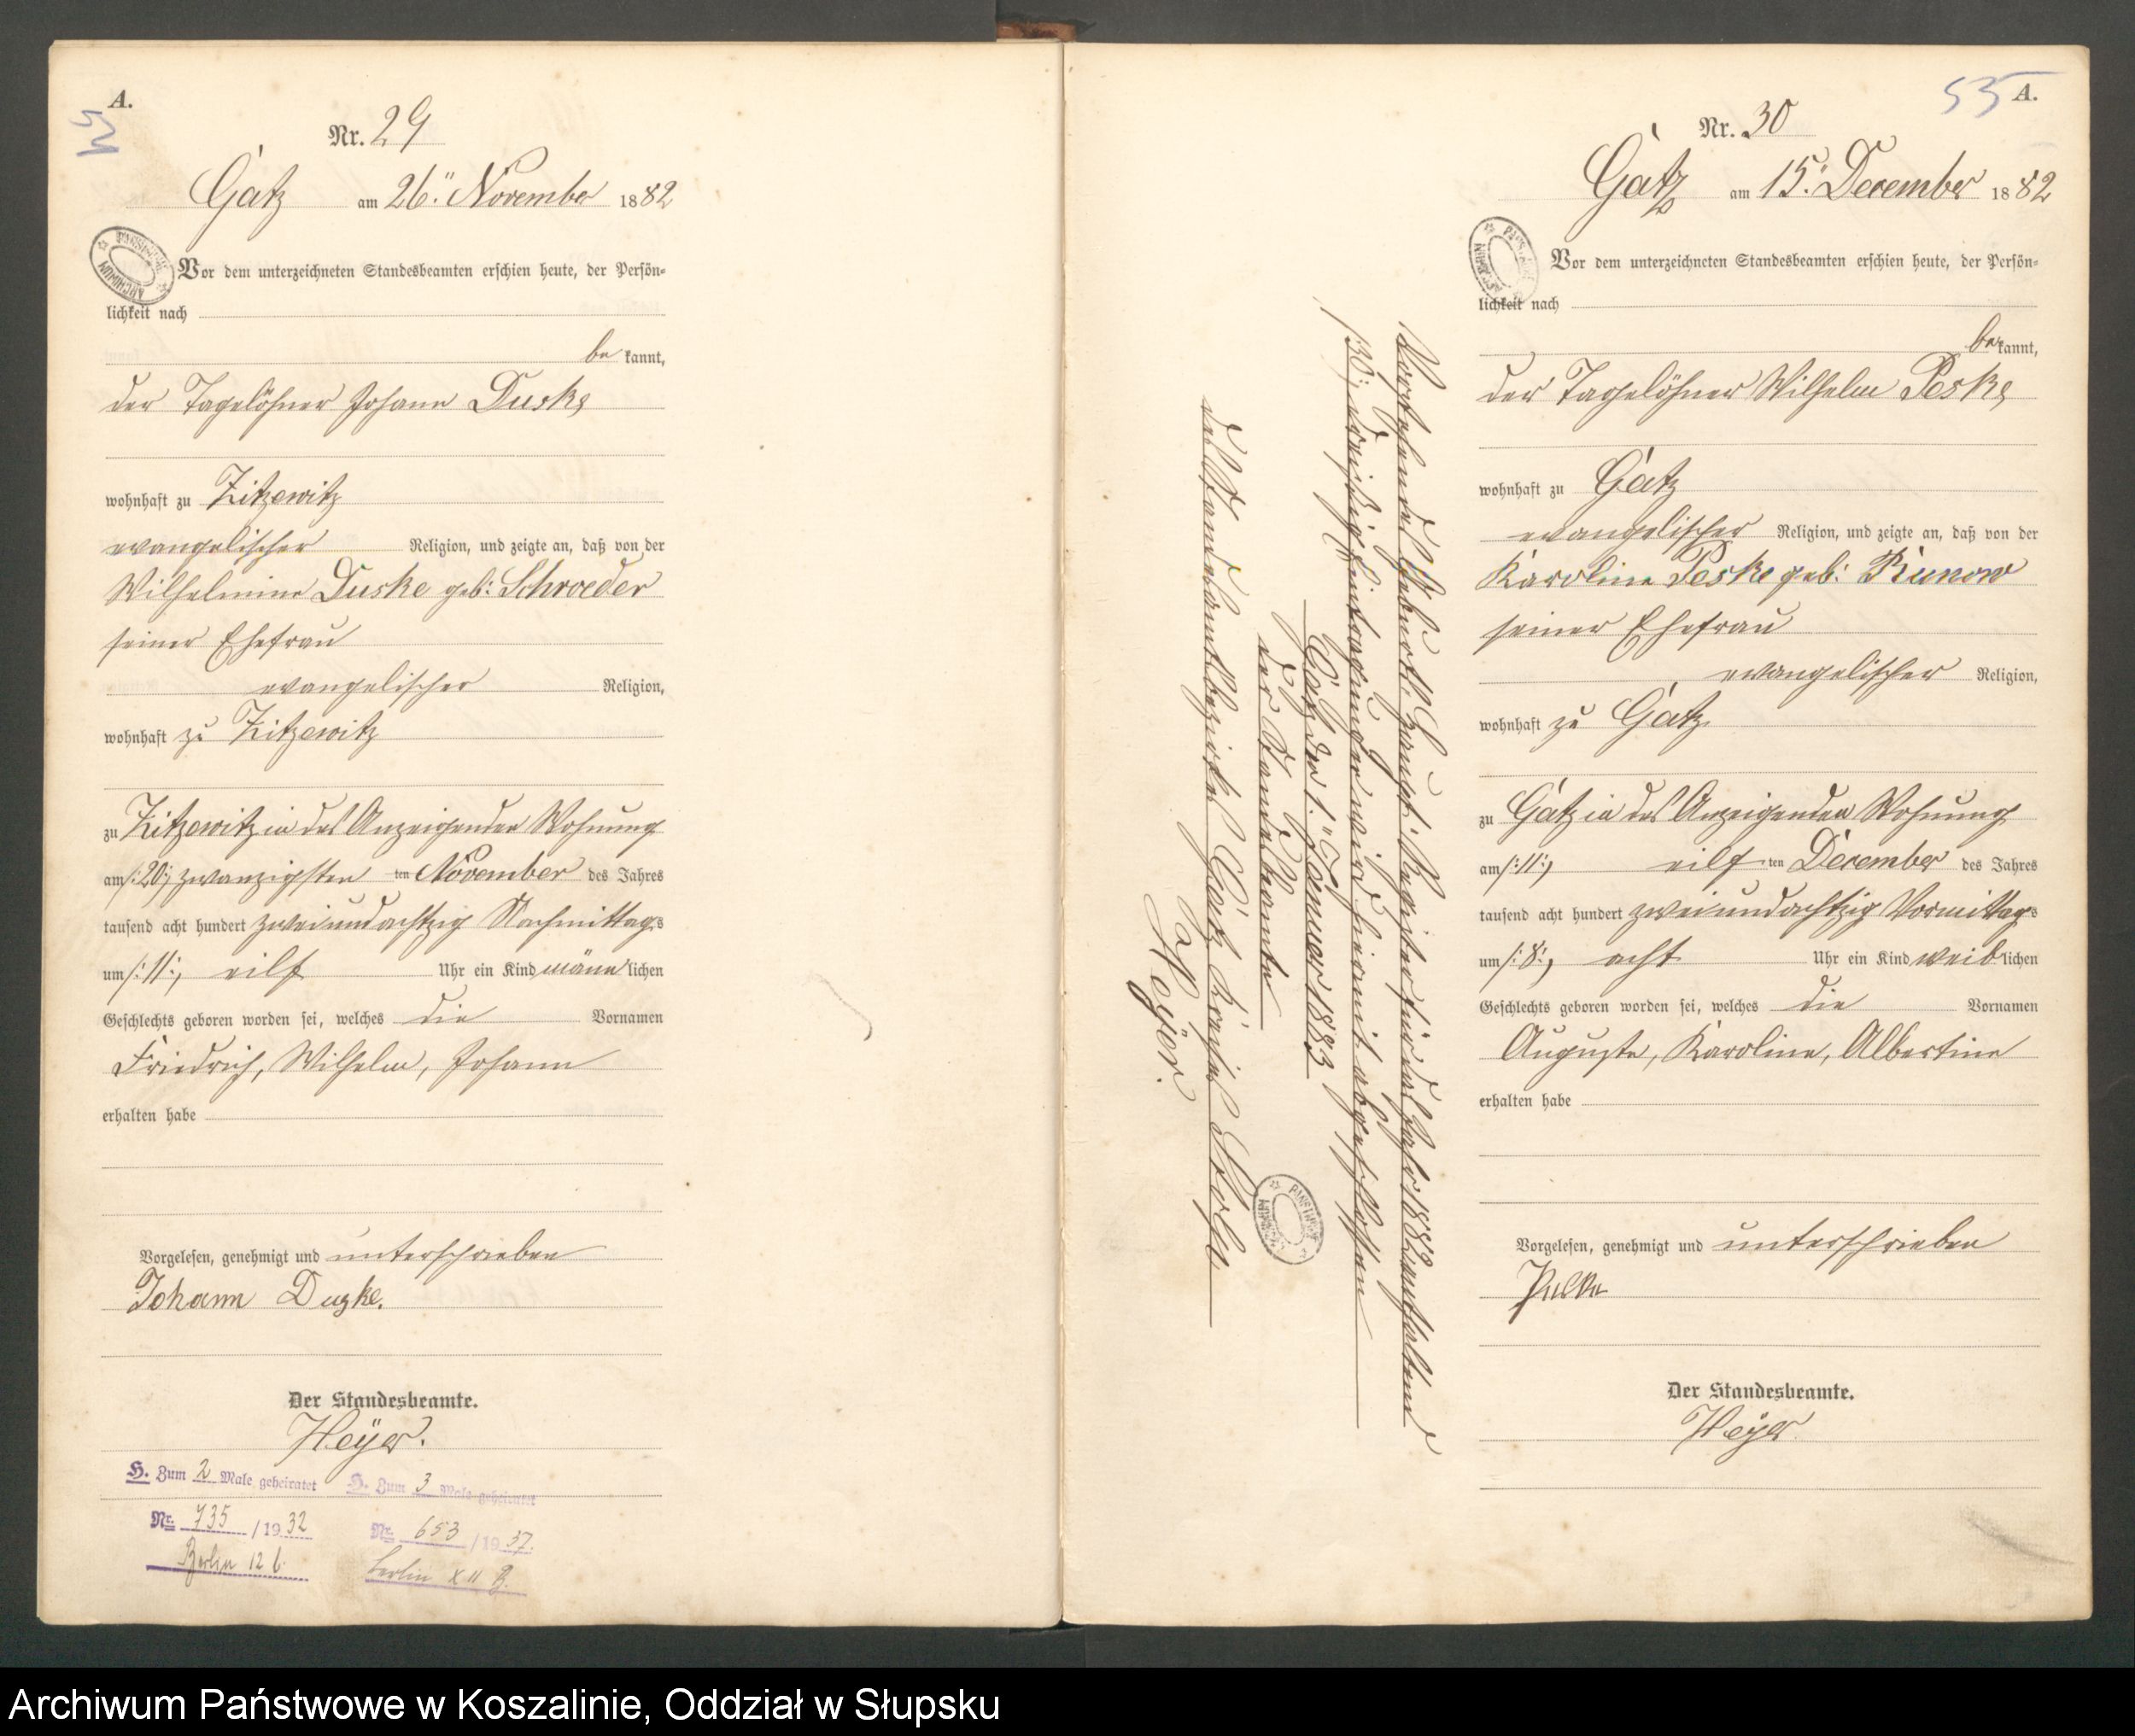 A.
Nr. 29
Gatz am 26. November 1882
Vor dem unterzeichneten Standesbeamten erschien heute, der Persön-
lichkeit nach
be kannt,
der Tagelöhner Johann Duske
wohnhaft zu Zitzewitz
evangelischer Religion, und zeigte an, daß von der
Wilhelmine Duske geb: Schroeder
seiner Ehefrau
evangelischer Religion,
wohnhaft zu Zitzewitz
zu Zitzewitz in des Anzeigenden Wohnung
am /:20:/ zwanzigsten ten November des Jahres
tausend acht hundert zwei und achtzig Nachmittags
um /:11:/ eilf Uhr ein Kind männlichen
Geschlechts geboren worden sei, welches die Vornamen
Friedrich, Wilhelm, Johann
erhalten habe
Vorgelesen, genehmigt und unterschrieben
Johann Duske.
Der Standesbeamte.
Heyer.
H. Zum 2 Male geheiratet
Nr. 735 /1932
Berlin 12 b.
H. Zum 3 Male geheiratet
Nr. 653 /1937.
Berlin XII B.
Vorstehendes Geburts Haupt-Register für das Jahr 1882 enthaltend
/:30:/ dreißig Eintragungen wird hiermit abgeschlossen
Gatz den 1. Januar 1883
der Standesbeamte
des Standesamtsbezirkes Gatz Kreises Stolp
Heyer.
53 A.
Nr. 30
Gatz am 15. December 1882
Vor dem unterzeichneten Standesbeamten erschien heute, der Persön-
lichkeit nach
be kannt,
der Tagelöhner Wilhelm Peske
wohnhaft zu Gatz
evangelischer Religion, und zeigte an, daß von der
Karoline Peske geb: Kunow
seiner Ehefrau
evangelischer Religion,
wohnhaft zu Gatz
zu Gatz in des Anzeigenden Wohnung
am /:11:/ eilf ten December des Jahres
tausend acht hundert zwei und achtzig Vormittags
um /:8:/ acht Uhr ein Kind weiblichen
Geschlechts geboren worden sei, welches die Vornamen
Auguste, Karoline, Albertine
erhalten habe
Vorgelesen, genehmigt und unterschrieben
Der Standesbeamte.
Heyer.
Archiwum Państwowe w Koszalinie, Oddział w Słupsku